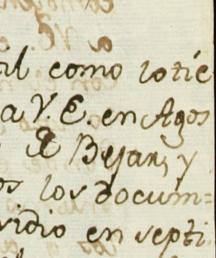 il como lo tie
a V. E. en Agos
R Bejar, y
os los docum=
vidio en septi